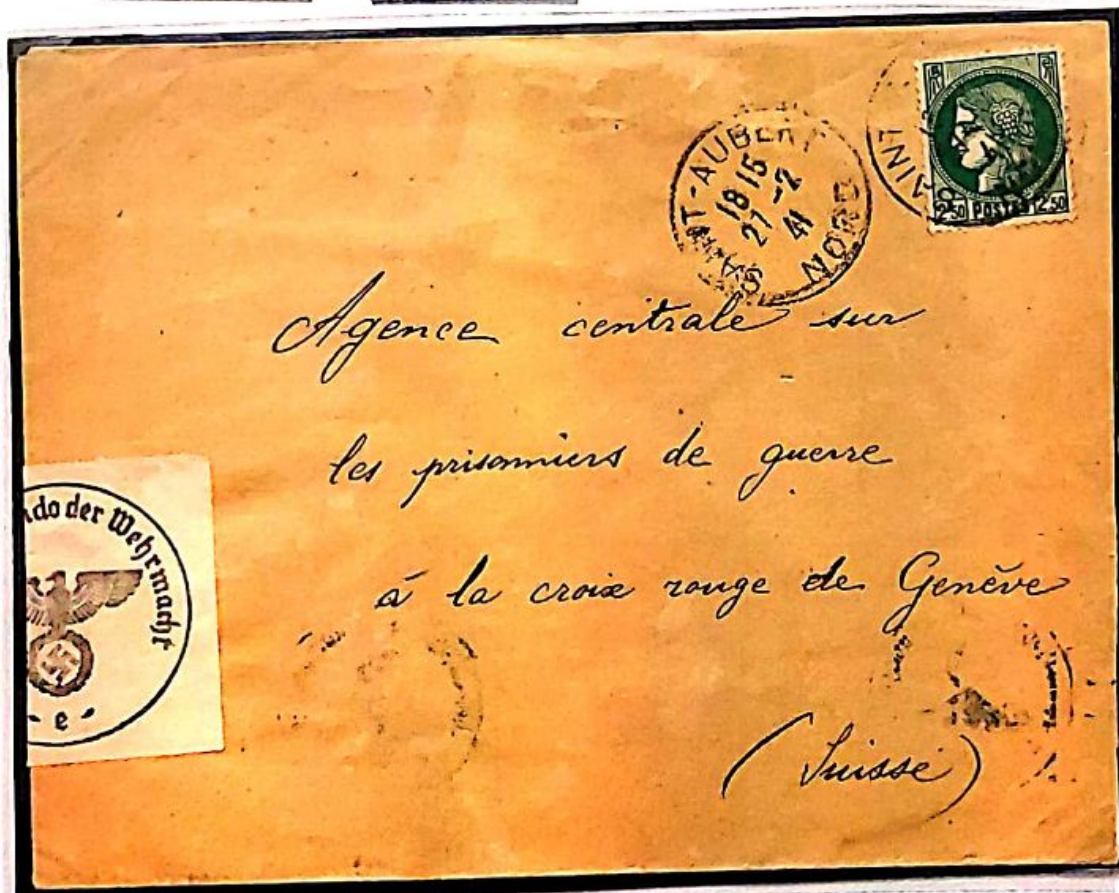 SAINT-AUBERT
18 15
27 -2
41
NORD
SAINT
2,50 POSTES 2,50
Agence centrale sur
les prisonniers de guerre
à la croix rouge de Genève
(Suisse)
ndo der Wehrmacht
- e -